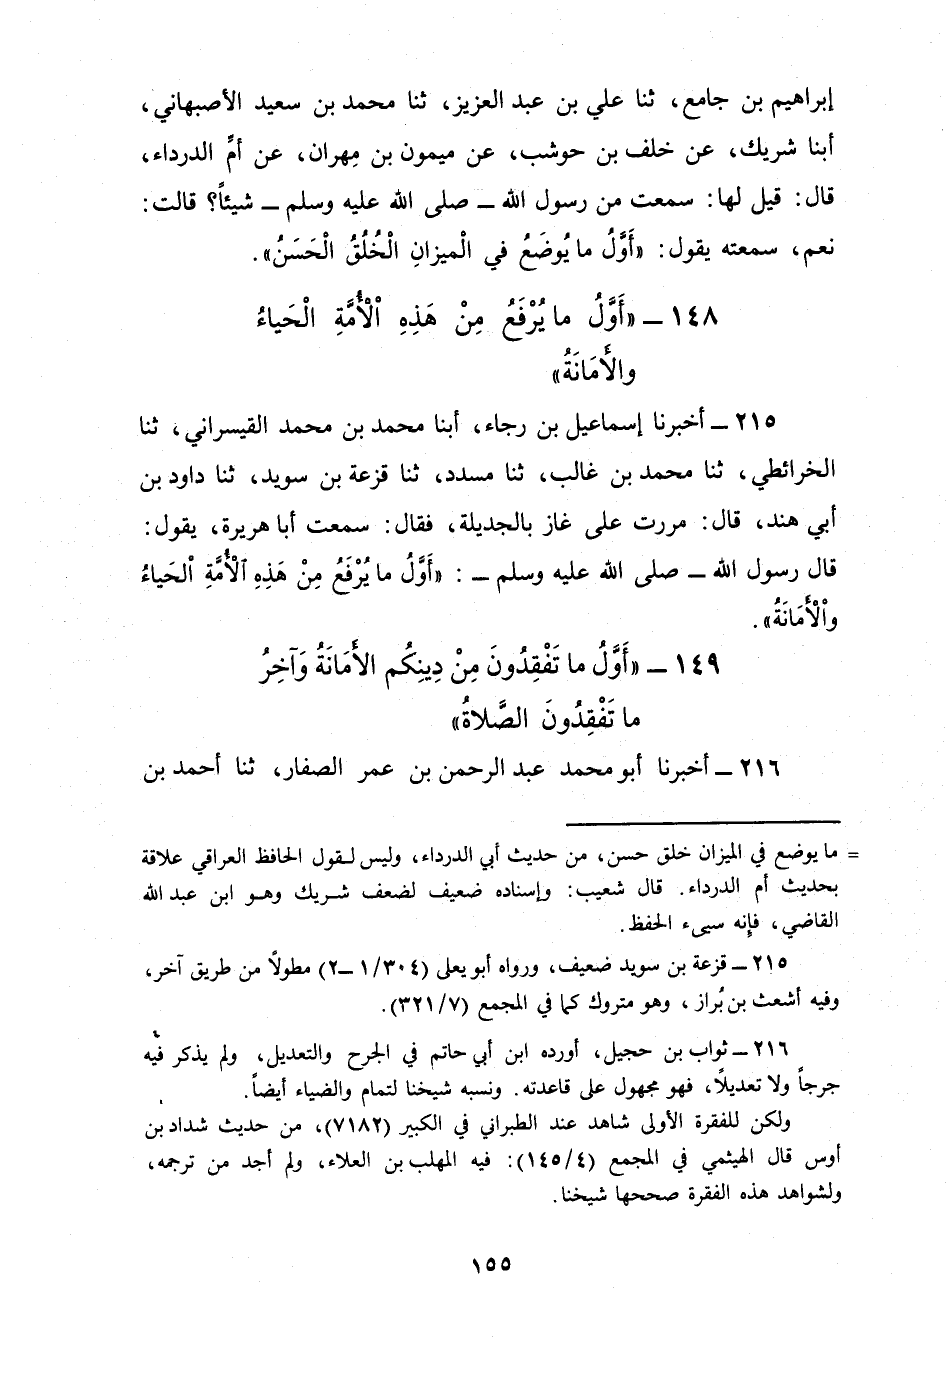 إبراهيم بن جامع، ثنا علي بن عبد العزيز، ثنا محمد بن سعيد الأصبهاني،
أبنا شريك، عن خلف بن حوشب، عن ميمون بن مِهران، عن أمِّ الدرداء،
قال: قيل لها: سمعت من رسول الله ــ صلى الله عليه وسلم ــ شيئاً؟ قالت:
نعم، سمعته يقول: «أَوَّلُ ما يُوضَعُ في الْميزانِ الْخُلُقُ الْحَسَنُ».
١٤٨ ــ «أَوَّلُ ما يُرْفَعُ مِنْ هَذِهِ اْلْأُمَّةِ الْحَياءُ
والأَمَانَةُ»
٢١٥ ــ أخبرنا إسماعيل بن رجاء، أبنا محمد بن محمد القيسراني، ثنا
الخرائطي، ثنا محمد بن غالب، ثنا مسدد، ثنا قزعة بن سويد، ثنا داود بن
أبي هند، قال: مررت على غاز بالجديلة، فقال: سمعت أبا هريرة، يقول:
قال رسول الله ــ صلى الله عليه وسلم ــ : «أَوَّلُ ما يُرْفَعُ مِنْ هَذِهِ اْلْأُمَّةِ اْلحَياءُ
واْلْأَمَانَةُ».
١٤٩ ــ «أَوَّلُ ما تَفْقِدُونَ مِنْ دِينِكُم الأَمَانَةُ وَآخِرُ
ما تَفْقِدُونَ الصَّلاةُ»
٢١٦ ــ أخبرنا أبو محمد عبد الرحمن بن عمر الصفار، ثنا أحمد بن
= ما يوضع في الميزان خلق حسن، من حديث أبي الدرداء، وليس لقول الحافظ العراقي علاقة
بحديث أم الدرداء. قال شعيب: وإسناده ضعيف لضعف شريك وهو ابن عبد الله
القاضي، فإنه سيىء الحفظ.
٢١٥ ــ قزعة بن سويد ضعيف، ورواه أبو يعلى (٣٠٤/ ١ــ٢) مطولاً من طريق آخر،
وفيه أشعث بن بُراز، وهو متروك كما في المجمع (٣٢١/٧).
٢١٦ ــ ثواب بن حجيل، أورده ابن أبي حاتم في الجرح والتعديل، ولم يذكر فيه
جرجاً ولا تعديلاً، فهو مجهول على قاعدته. ونسبه شيخنا لتمام والضياء أيضاً.
ولكن للفقرة الأولى شاهد عند الطبراني في الكبير (٧١٨٢)، من حديث شداد بن
أوس قال الهيثمي في المجمع (١٤٥/٤): فيه المهلب بن العلاء، ولم أجد من ترجمه،
ولشواهد هذه الفقرة صححها شيخنا.
١٥٥